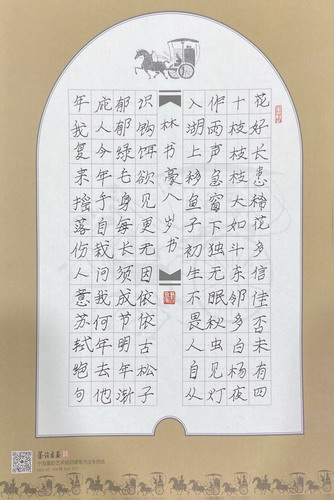 花好长患稀花多信佳否未有四
十枝枝枝大如斗东邻多白杨夜
作雨声急窗下独无眠秋虫见灯
入湖上移鱼子初生不畏人自从
林书豪八岁书
识钩饵欲见更无因依依古松子
郁郁绿毛身每长须成节明年渐
庇人今年手自栽问我何年去他
年我复来摇落伤人意苏轼绝句